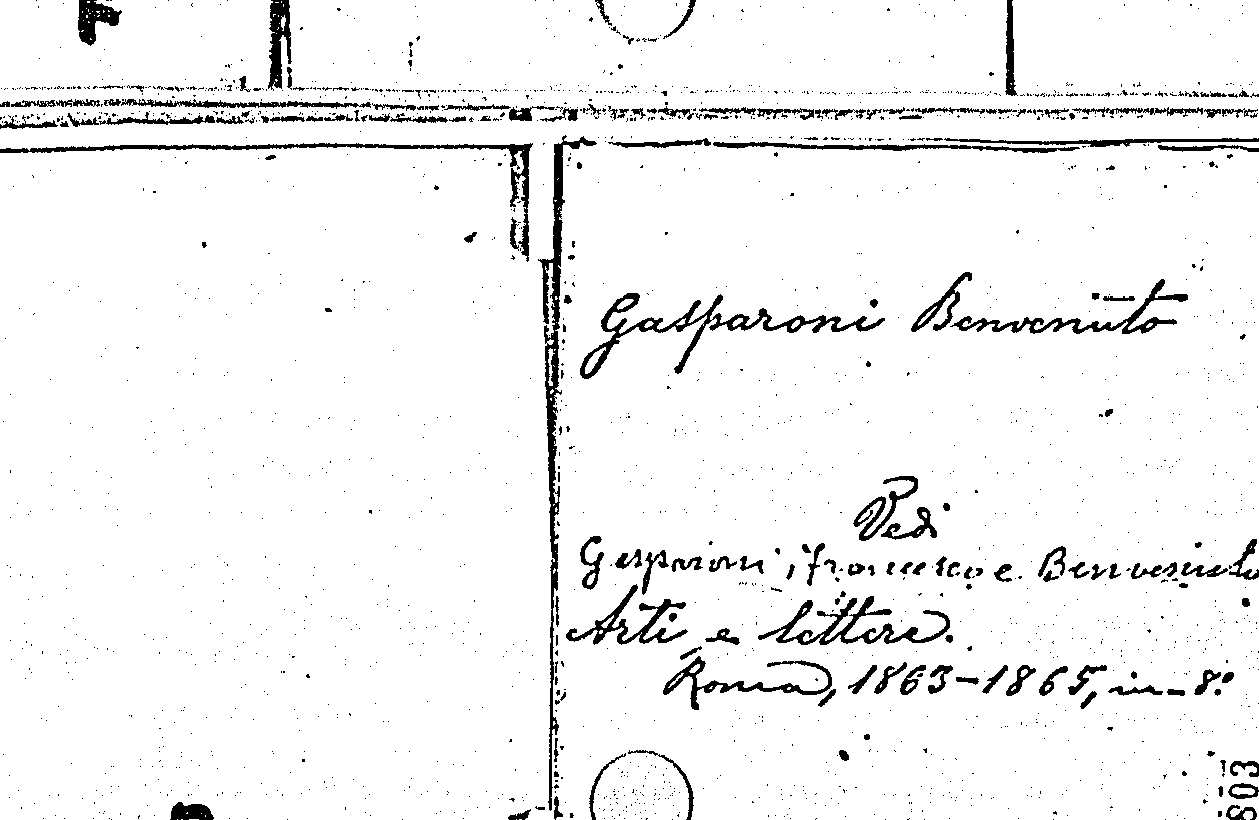 Gasparoni Benvenuto
Vedi
Gasparoni, Francesco e Benvenuto
Arti e lettere.
Roma, 1863-1865, in-8º
803